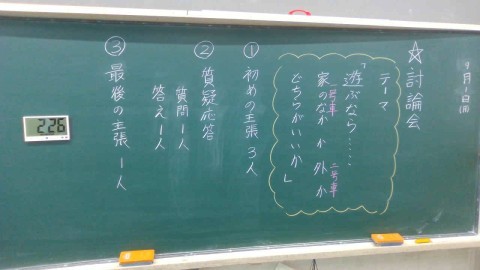 9月1日(月)
☆討論会
テーマ
「遊ぶなら……
家のなか か 外か
一号車 二号車
どちらがいいか」
① 初めの主張 3人
② 質疑応答
質問1人
答え1人
③ 最後の主張 1人
2:26